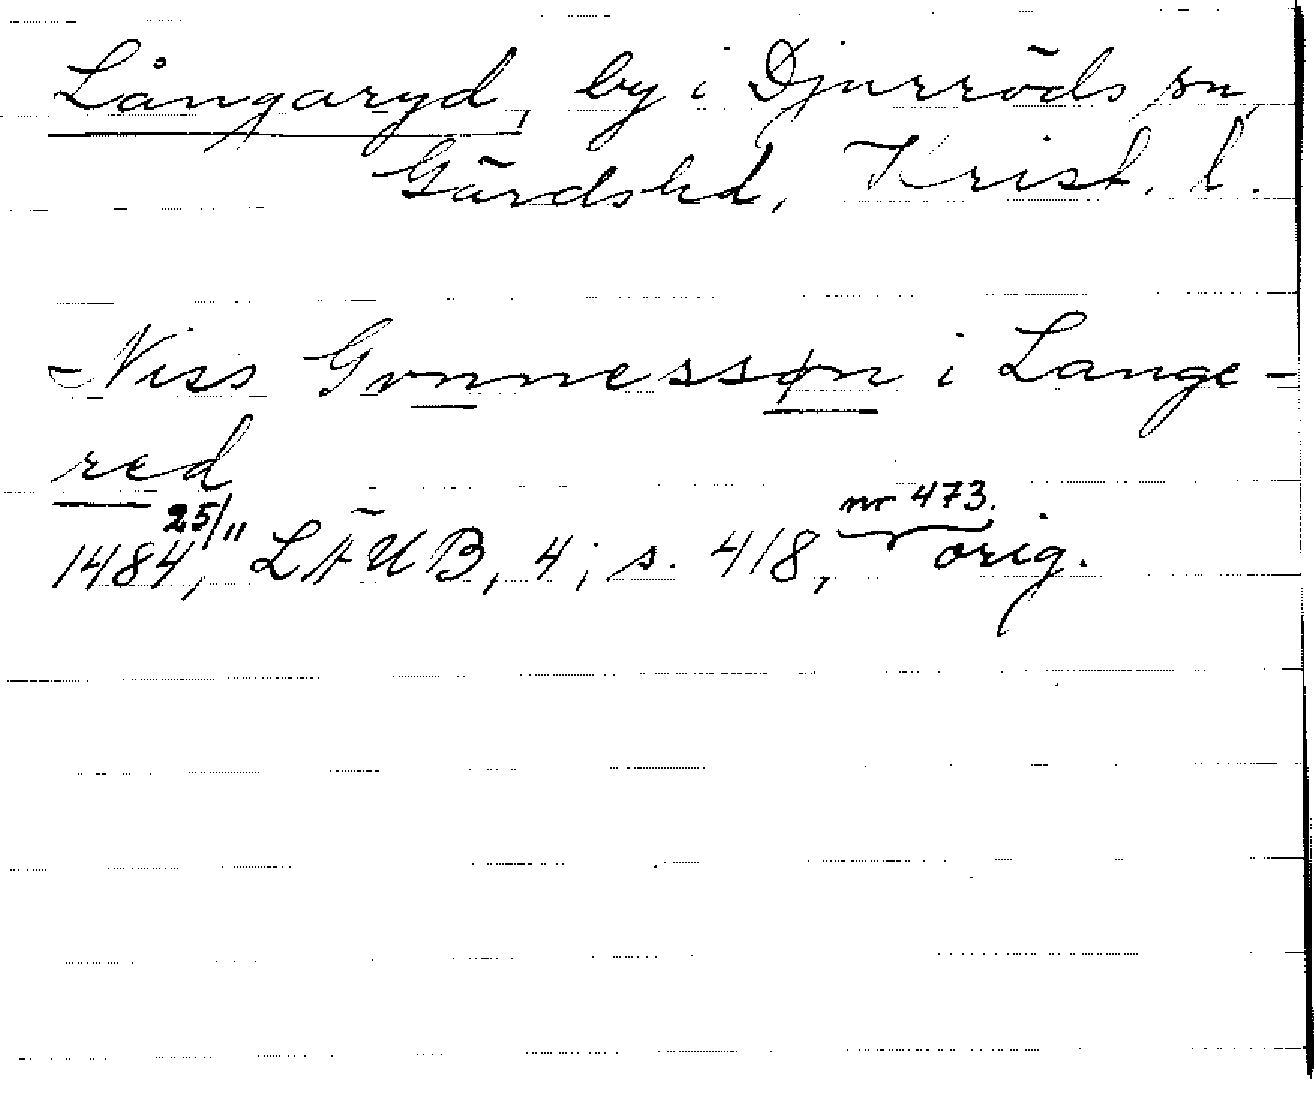 Långaryd, by i Djurröds sn,
Gärds hd, Krist. l.
- Niss Gvnnessøn i Lange-
red
1484 25/11, LÄUB, 4; s. 418, nr 473. orig.